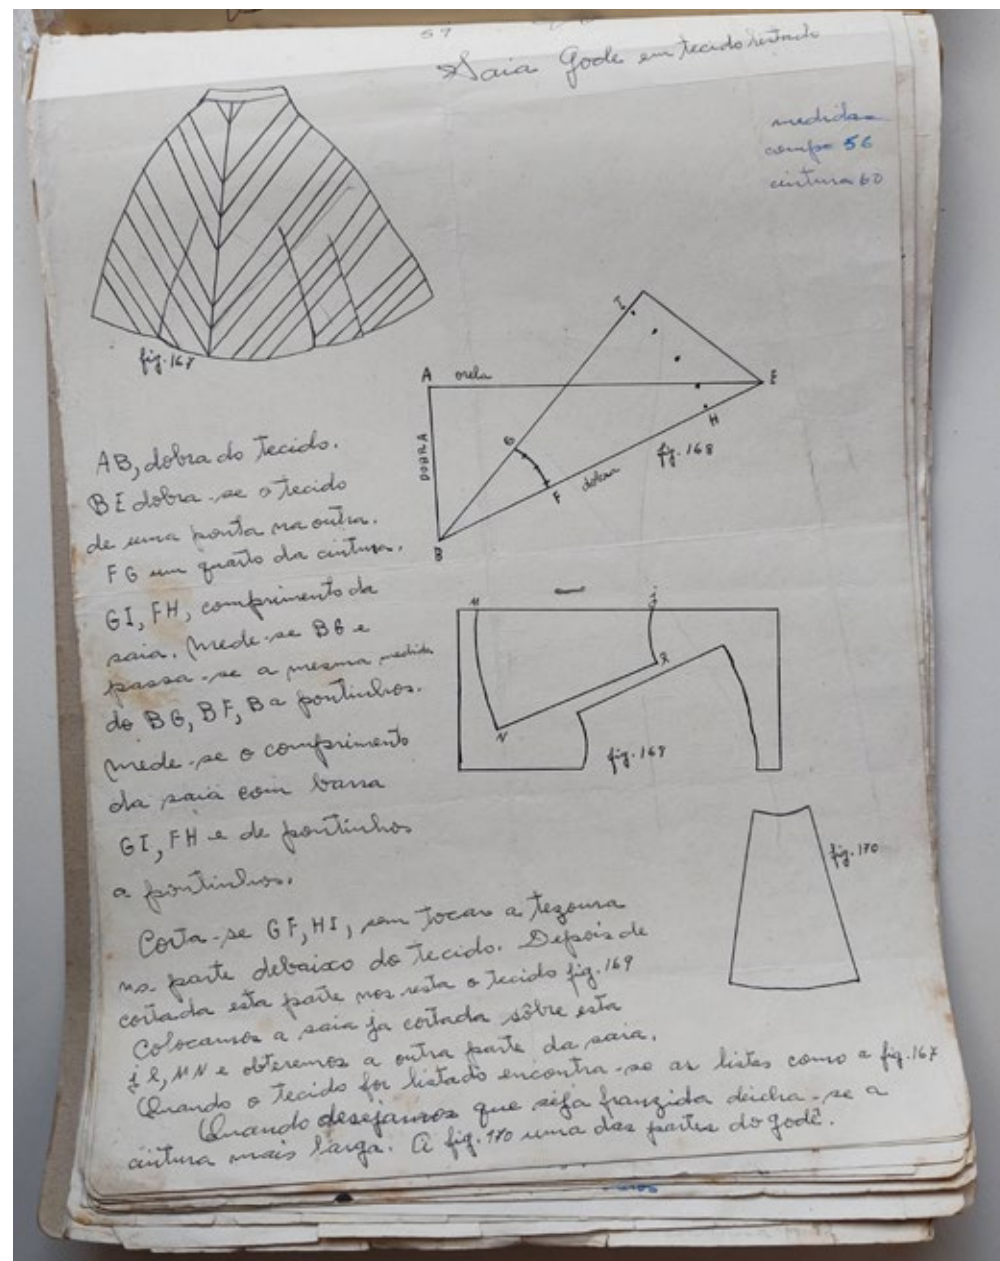 59
Saia Gode em tecido listado
medidas
comp 56
cintura 60
fig. 167
I
A orela E
DOBRA
G
H
fig. 168
dobra
F
B
AB, dobra do tecido.
BE dobra-se o tecido
de uma ponta na outra.
FG um quarto da cintura.
GI, FH, comprimento da
saia. Mede-se BG e
passa-se a mesma medida
do BG, BF, B a pontinhos.
Mede-se o comprimento
da saia com barra
GI, FH e de pontinhos
a pontinhos.
M j
R
N
fig. 169
fig. 170
Corta-se GF, HI, sem tocar a tezoura
na parte debaixo do tecido. Depois de
cortada esta parte nos resta o tecido fig. 169
Colocamos a saia ja cortada sôbre esta
j R, MN e obteremos a outra parte da saia.
Quando o tecido for listado encontra-se as listes como a fig. 167
Quando desejamos que seja franzida deicha-se a
cintura mais larga. A fig. 170 uma das partes do godê.